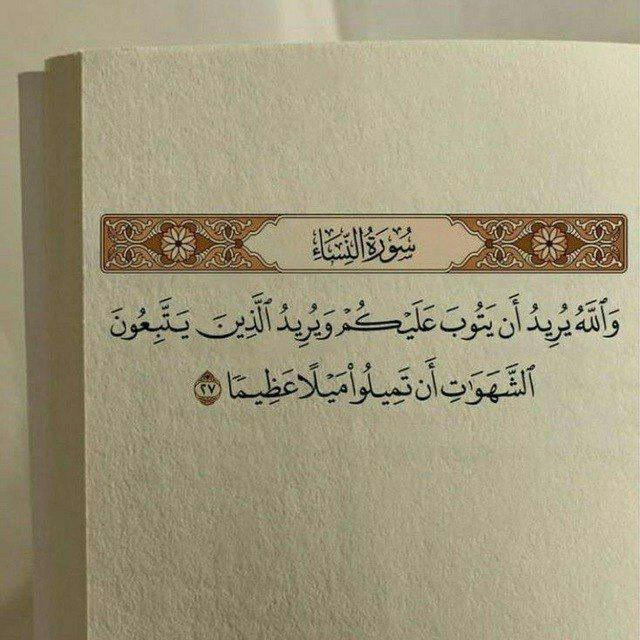 سُورَةُ النِّسَاءِ
وَٱللَّهُ يُرِيدُ أَن يَتُوبَ عَلَيۡكُمۡ وَيُرِيدُ ٱلَّذِينَ يَتَّبِعُونَ
ٱلشَّهَوَٰتِ أَن تَمِيلُواْ مَيۡلًا عَظِيمٗا ٢٧